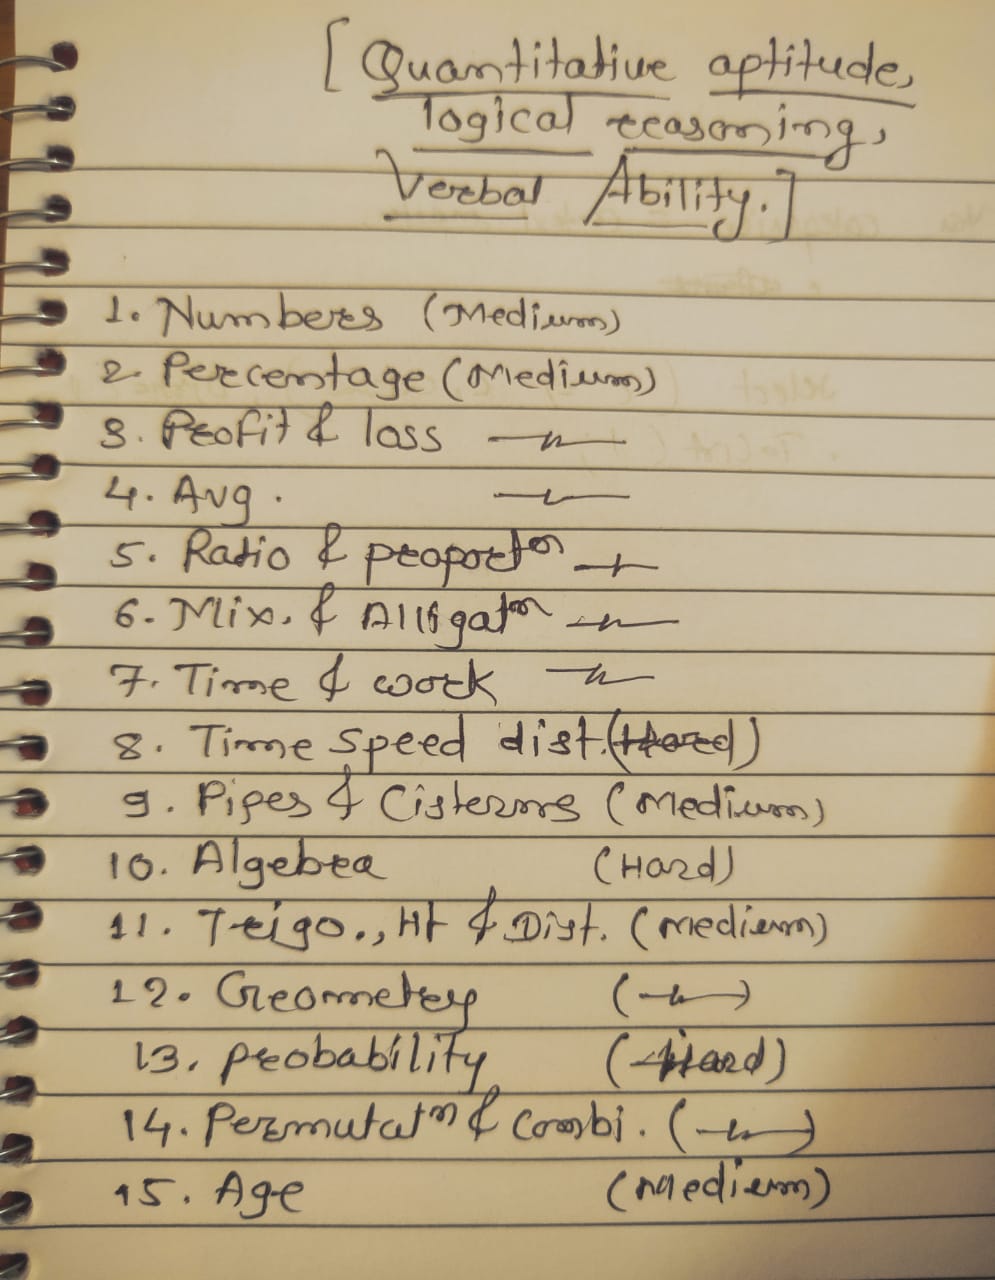 [Quantitative aptitude,
logical reasoning,
Verbal Ability.]
1. Numbers (Medium)
2. Percentage (Medium)
3. Profit & loss —〃—
4. Avg. —〃—
5. Ratio & proportn —〃—
6. Mix. & Alligatn —〃—
7. Time & work —〃—
8. Time Speed dist. (Hard)
9. Pipes & Cisterns (Medium)
10. Algebra (Hard)
11. Trigo., Ht & Dist. (Medium)
12. Geometry (—〃—)
13. Probability (Hard)
14. Permutatn & Combi. (—〃—)
15. Age (Medium)